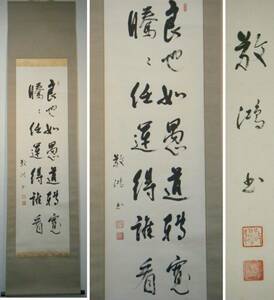 良也如愚道轉寛
騰々任運得誰看
鴻書
良也如愚道轉寛
騰々任運得誰看
鴻書
鴻書